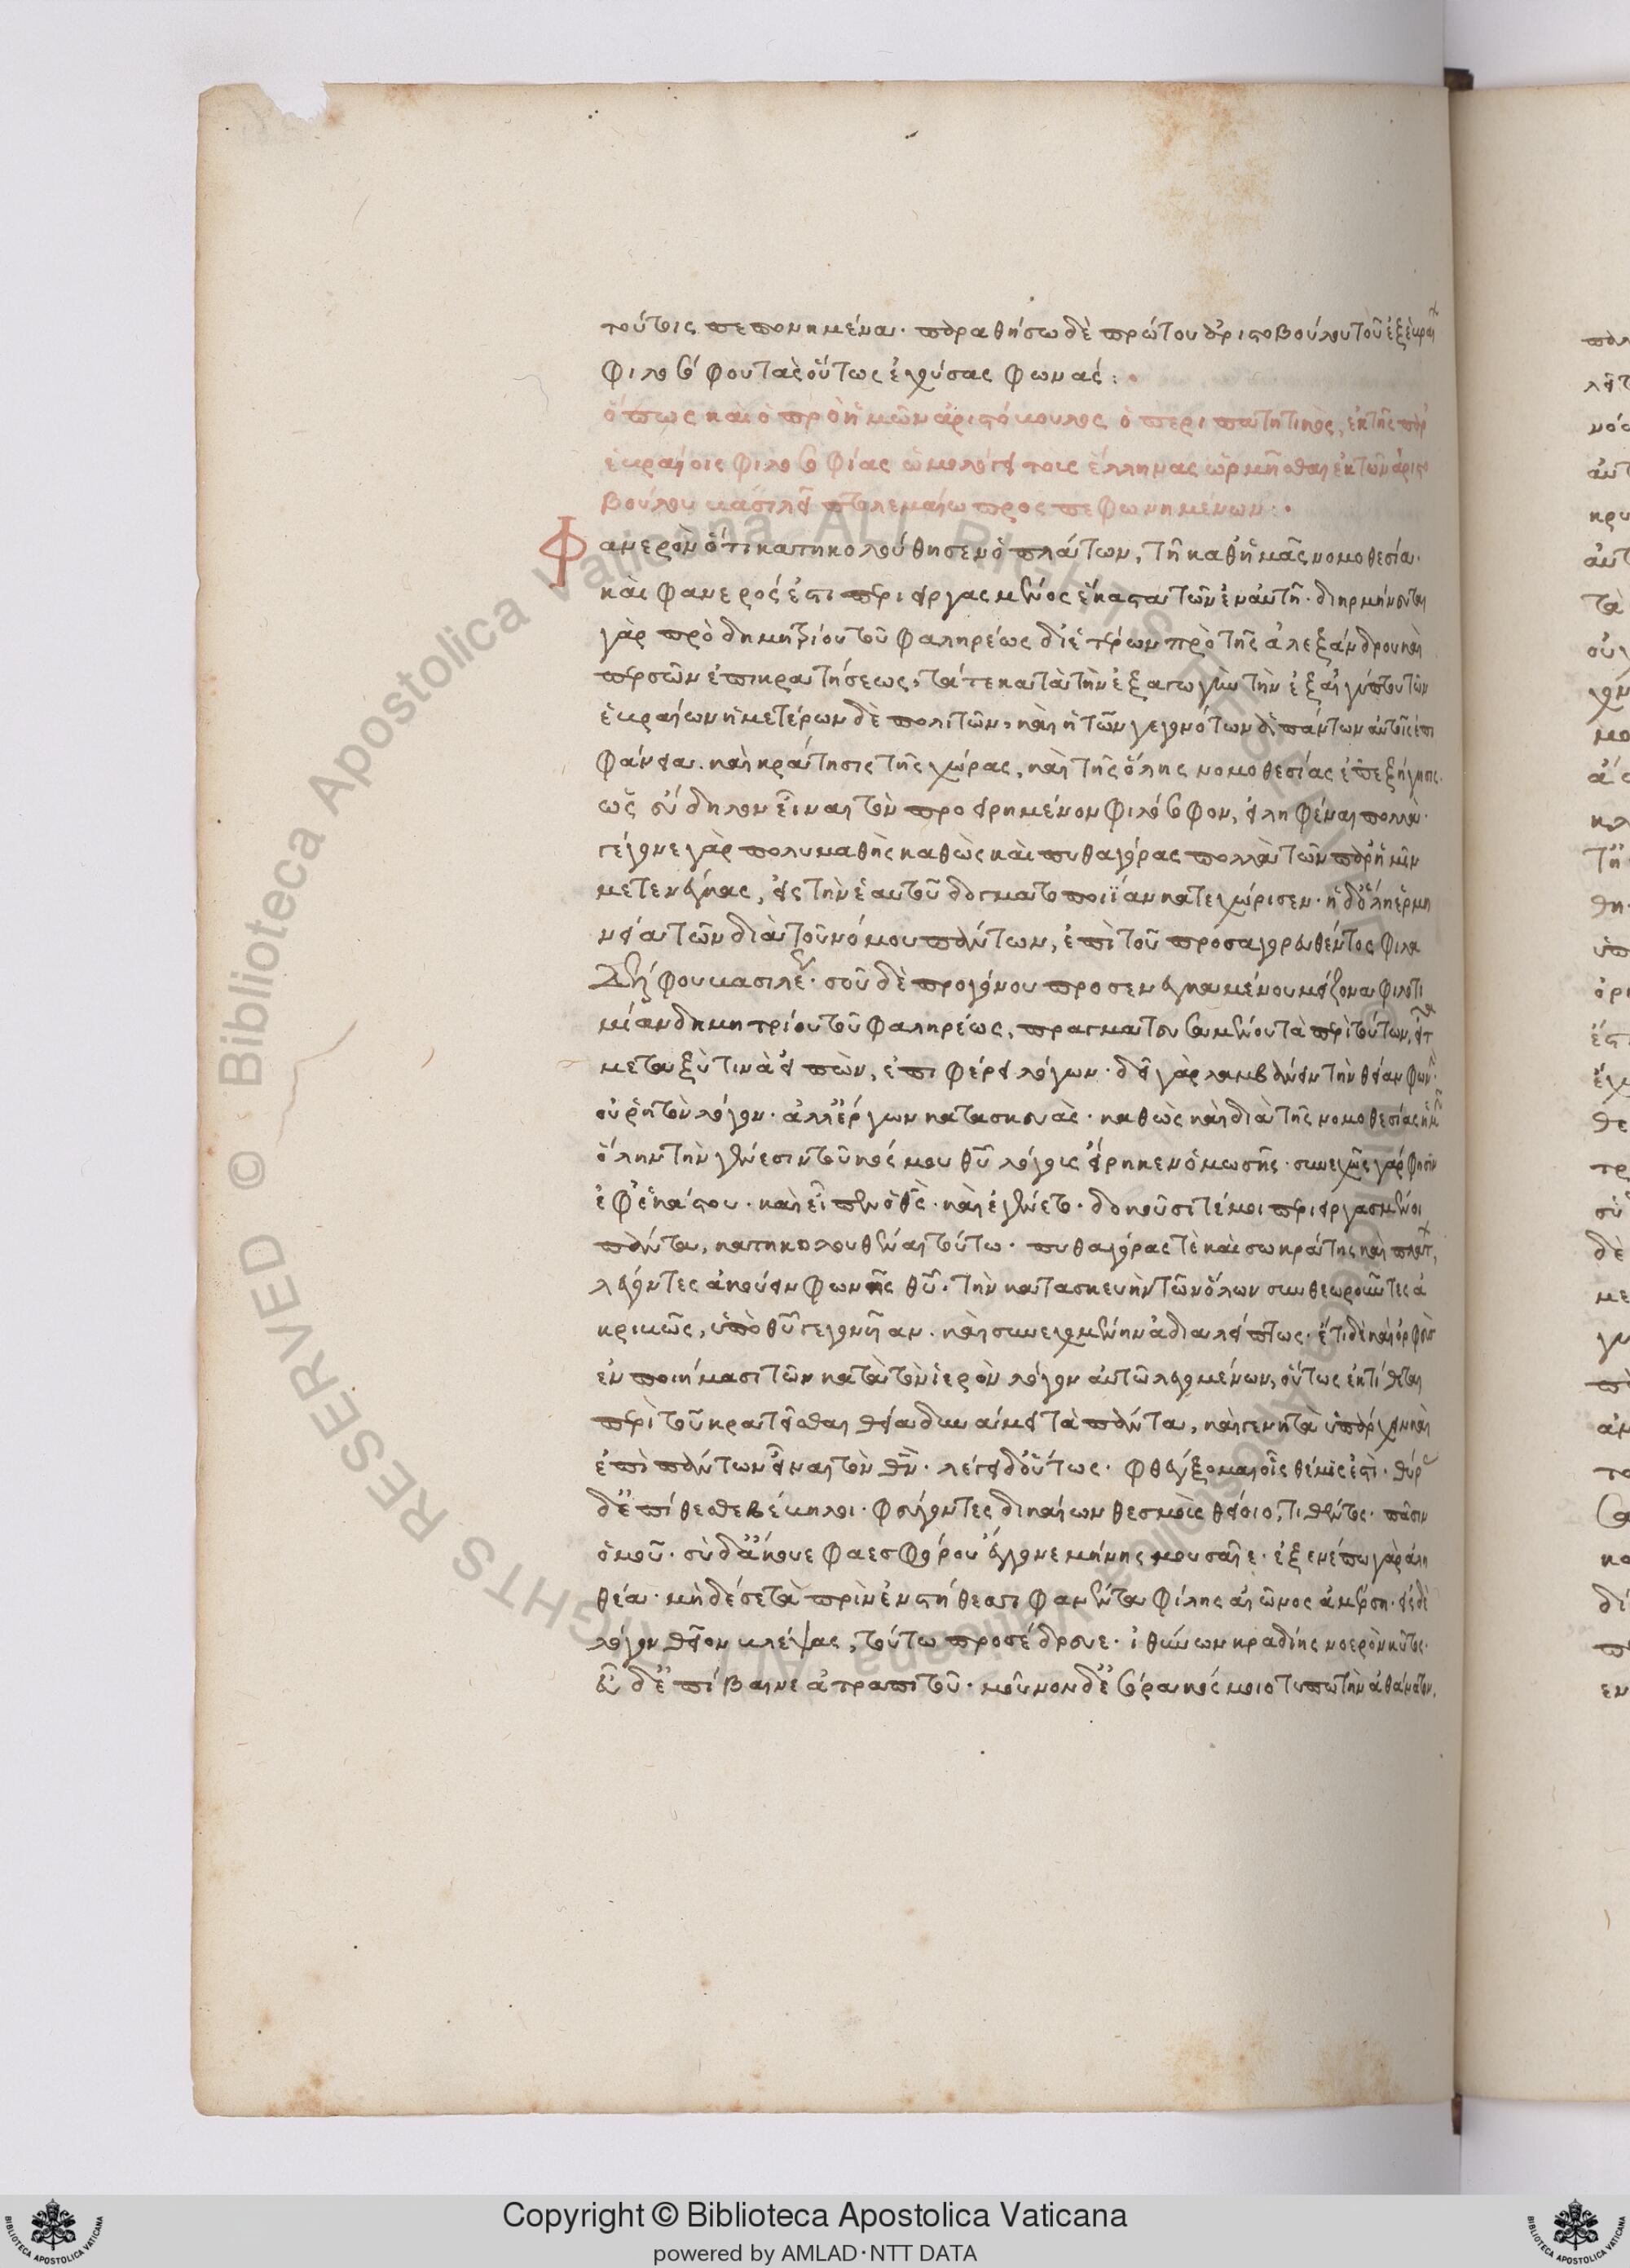 τούτοις πεπονημένα· παραθήσω δὲ πρώτου ἀριστοβούλου τοῦ ἐξ ἑβραί
φιλοσόφου τὰς οὕτως ἐχούσας φωνάς:
ὅπως καὶ ὁ πρὸ ἡμῶν ἀριστόβουλος ὁ περιπατητικὸς, ἐκ τῆς παρ
ἑβραίοις φιλοσοφίας ὡμολόγει τοὺς ἕλληνας ὡρμῆσθαι ἐκ τῶν ἀριστο
βούλου βασιλεῖ πτολεμαίω προσπεφωνημένων:
Φανερὸν ὅτι κατηκολούθησεν ὁ πλάτων, τῆ καθ ἡμᾶς νομοθεσία·
καὶ φανερός ἐστι περιειργασμένος ἕκαστα τῶν ἐν αὐτῆ· διηρμήνευται
γὰρ πρὸ δημητρίου τοῦ φαληρέως δι ἑτέρων πρὸ τῆς ἀλεξάνδρου καὶ
περσῶν ἐπικρατήσεως, τά τε κατὰ τὴν ἐξαγωγὴν τὴν ἐξ αἰγύπτου τῶν
ἑβραίων ἡμετέρων δὲ πολιτῶν, καὶ ἡ τῶν γεγονότων ἁπάντων αὐτοῖς ἐπι
φάνεια. καὶ κράτησις τῆς χώρας, καὶ τῆς ὅλης νομοθεσίας ἐπεξήγησις.
ὡς εὔδηλον εἶναι τὸν προειρημένον φιλόσοφον, εἰληφέναι πολλά·
γέγονε γὰρ πολυμαθὴς καθὼς καὶ πυθαγόρας πολλὰ τῶν παρ ἡμῖν
μετενέγκας, εἰς τὴν ἑαυτοῦ δογματοποιΐαν κατεχώρισεν· ἡ δ ὅλη ἑρμη
νεία τῶν διὰ τοῦ νόμου πάντων, ἐπὶ τοῦ προσαγορευθέντος φιλα
δέλφου βασιλέ· σοῦ δὲ προγόνου προσενεγκαμένου μείζονα φιλοτι
μίαν δημητρίου τοῦ φαληρέως, πραγματευσαμένου τὰ περὶ τούτων,
μεταξύ τινα εἰπὼν, ἐπιφέρει λέγων· δεῖ γὰρ λαμβάνειν τὴν θείαν φων
οὐ ῥητὸν λόγον· ἀλλ ἔργων κατασκευὰς· καθὼς καὶ διὰ τῆς νομοθεσίας ἡμ
ὅλην τὴν γένεσιν τοῦ κόσμου θῦ λόγους εἴρηκεν ὁ μωσῆς· συνεχῶς γάρ φησιν
ἐφ ἑκάστου· καὶ εἶπεν ὁ θς· καὶ ἐγένετο· δοκοῦσι τέ μοι περιειργασμένοι
πάντα, κατηκολουθηκέναι τούτω· πυθαγόρας τὲ καὶ σωκράτης καὶ πλάτ
λέγοντες ἀκούειν φωνῆς θῦ· τὴν κατασκευὴν τῶν ὅλων συνθεωροῦντες ἀ
κριβῶς, ὑπὸ θῦ γεγονῦιαν. καὶ συνεχομένην ἀδιαλείπτως· ἔτι δὲ καὶ ὀρφεὺς
ἐν ποιήμασι τῶν κατὰ τὸν ἱερὸν λόγον αὐτῶ λεγομένων, οὕτως ἐκτίθεται
περὶ τοῦ κρατεῖσθαι θεία δυνάμει τὰ πάντα, καὶ γενητὰ ὑπάρχειν καὶ
ἐπὶ πάντων εἶναι τὸν θν· λέγει δ οὕτως· φθέγξομαι οἷς θέμις ἐστὶ· θύρ
δ ἐπίθεσθε βέβηλοι· φεύγοντες δικαίων θεσμοὺς θείοιο, τιθέντος· πᾶσιν
ὁμοῦ· σὺ δ ἄκουε φαεσφόρου ἔκγονε μήνης μουσαῖε· ἐξενέπω γὰρ ἀλη
θέα· μὴ δέ σε τὰ πρὶν ἐν στήθεσσι φανέντα φίλης αἰῶνος ἀμέρση· εἰς δὲ
λόγον θεῖον βλέψας, τούτω προσέδρευε· ἰθύνων κραδίης νοερὸν κῦτος·
εὖ δ ἐπίβαινε ἀτραπιτοῦ· μοῦνον δ ἐσόρα κόσμοιο τυπωτὴν ἀθάνατον,
Copyright © Biblioteca Apostolica Vaticana
powered by AMLAD·NTT DATA